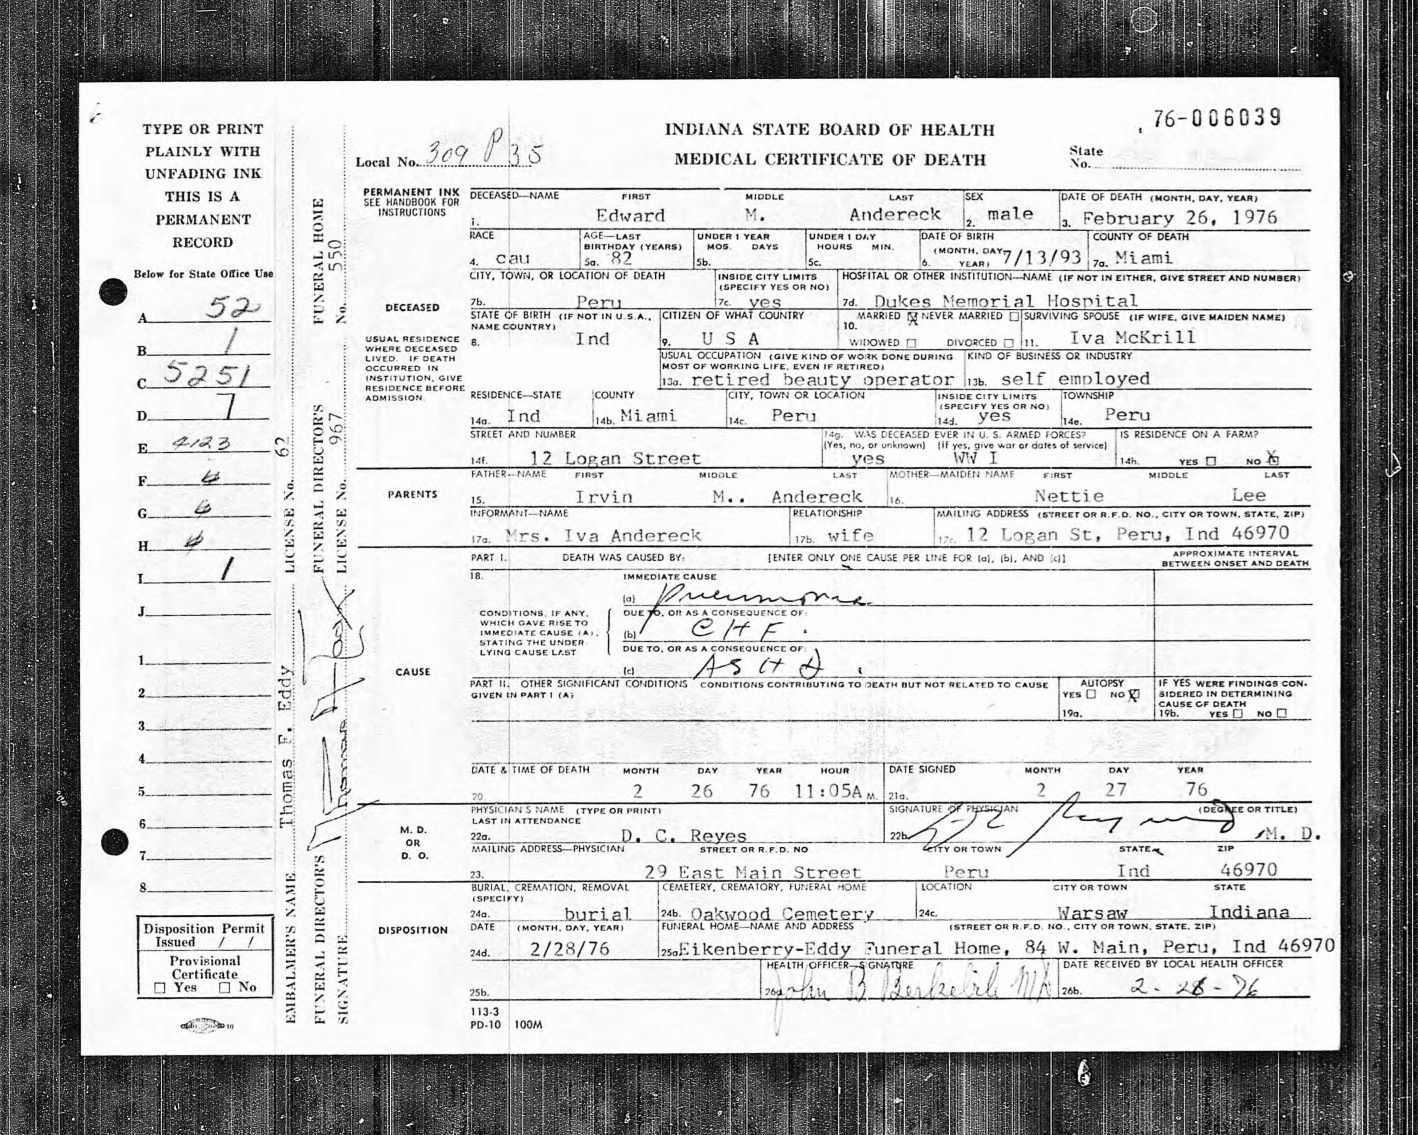 76-006039
TYPE OR PRINT
PLAINLY WITH
UNFADING INK
THIS IS A
PERMANENT
RECORD
Below for State Office Use
A 52
B 1
C 5251
D 7
E 4123
F 6
G 6
H
I 1
J
1
2
3
4
5
6
7
8
Disposition Permit
Issued / /
Provisional
Certificate
Yes No
EMBALMER'S NAME Thomas F. Eddy LICENSE No. 62
FUNERAL DIRECTOR'S FUNERAL DIRECTOR'S FUNERAL HOME
SIGNATURE LICENSE No. 967 No. 550
INDIANA STATE BOARD OF HEALTH
MEDICAL CERTIFICATE OF DEATH
Local No. 309 P 35
State
No.
PERMANENT INK
SEE HANDBOOK FOR
INSTRUCTIONS
DECEASED—NAME FIRST MIDDLE LAST SEX DATE OF DEATH (MONTH, DAY, YEAR)
1. Edward M. Andereck 2. male 3. February 26, 1976
RACE AGE—LAST UNDER 1 YEAR UNDER 1 DAY DATE OF BIRTH COUNTY OF DEATH
BIRTHDAY (YEARS) MOS. DAYS HOURS MIN. (MONTH, DAY
4. cau 5a. 82 5b. 5c. 6. YEAR) 7/13/93 7a. Miami
CITY, TOWN, OR LOCATION OF DEATH INSIDE CITY LIMITS HOSPITAL OR OTHER INSTITUTION—NAME (IF NOT IN EITHER, GIVE STREET AND NUMBER)
(SPECIFY YES OR NO)
7b. Peru 7c. yes 7d. Dukes Memorial Hospital
DECEASED
STATE OF BIRTH (IF NOT IN U.S.A., CITIZEN OF WHAT COUNTRY MARRIED X NEVER MARRIED SURVIVING SPOUSE (IF WIFE, GIVE MAIDEN NAME)
NAME COUNTRY) 10.
8. Ind 9. U S A WIDOWED DIVORCED 11. Iva McKrill
USUAL RESIDENCE
WHERE DECEASED
LIVED. IF DEATH
OCCURRED IN
INSTITUTION, GIVE
RESIDENCE BEFORE
ADMISSION.
USUAL OCCUPATION (GIVE KIND OF WORK DONE DURING KIND OF BUSINESS OR INDUSTRY
MOST OF WORKING LIFE, EVEN IF RETIRED)
13a. retired beauty operator 13b. self employed
RESIDENCE—STATE COUNTY CITY, TOWN OR LOCATION INSIDE CITY LIMITS TOWNSHIP
(SPECIFY YES OR NO)
14a. Ind 14b. Miami 14c. Peru 14d. yes 14e. Peru
STREET AND NUMBER 14g. WAS DECEASED EVER IN U. S. ARMED FORCES? IS RESIDENCE ON A FARM?
(Yes, no, or unknown) (If yes, give war or dates of service)
14f. 12 Logan Street yes WW I 14h. YES NO X
PARENTS
FATHER—NAME FIRST MIDDLE LAST MOTHER—MAIDEN NAME FIRST MIDDLE LAST
15. Irvin M.. Andereck 16. Nettie Lee
INFORMANT—NAME RELATIONSHIP MAILING ADDRESS (STREET OR R.F.D. NO., CITY OR TOWN, STATE, ZIP)
17a. Mrs. Iva Andereck 17b. wife 17c. 12 Logan St, Peru, Ind 46970
PART I. DEATH WAS CAUSED BY: [ENTER ONLY ONE CAUSE PER LINE FOR (a), (b), AND (c)] APPROXIMATE INTERVAL
BETWEEN ONSET AND DEATH
18. IMMEDIATE CAUSE
(a) Pneumonia
CONDITIONS, IF ANY,
WHICH GAVE RISE TO
IMMEDIATE CAUSE (A),
STATING THE UNDER-
LYING CAUSE LAST
DUE TO, OR AS A CONSEQUENCE OF:
(b) CHF.
DUE TO, OR AS A CONSEQUENCE OF:
(c) ASHD
CAUSE
PART II. OTHER SIGNIFICANT CONDITIONS CONDITIONS CONTRIBUTING TO DEATH BUT NOT RELATED TO CAUSE
GIVEN IN PART I (A)
AUTOPSY
YES NO X
19a.
IF YES WERE FINDINGS CON-
SIDERED IN DETERMINING
CAUSE OF DEATH
19b. YES NO
DATE & TIME OF DEATH MONTH DAY YEAR HOUR DATE SIGNED MONTH DAY YEAR
20. 2 26 76 11:05A M. 21a. 2 27 76
M. D.
OR
D. O.
PHYSICIAN'S NAME (TYPE OR PRINT) SIGNATURE OF PHYSICIAN (DEGREE OR TITLE)
LAST IN ATTENDANCE
22a. D. C. Reyes 22b. M. D.
MAILING ADDRESS—PHYSICIAN STREET OR R.F.D. NO CITY OR TOWN STATE ZIP
23. 29 East Main Street Peru Ind 46970
DISPOSITION
BURIAL, CREMATION, REMOVAL CEMETERY, CREMATORY, FUNERAL HOME LOCATION CITY OR TOWN STATE
(SPECIFY)
24a. burial 24b. Oakwood Cemetery 24c. Warsaw Indiana
DATE (MONTH, DAY, YEAR) FUNERAL HOME—NAME AND ADDRESS (STREET OR R.F.D. NO., CITY OR TOWN, STATE, ZIP)
24d. 2/28/76 25a Eikenberry-Eddy Funeral Home, 84 W. Main, Peru, Ind 46970
HEALTH OFFICER—SIGNATURE DATE RECEIVED BY LOCAL HEALTH OFFICER
25b. 26a. John B 26b. 2-28-76
113-3
PD-10 100M